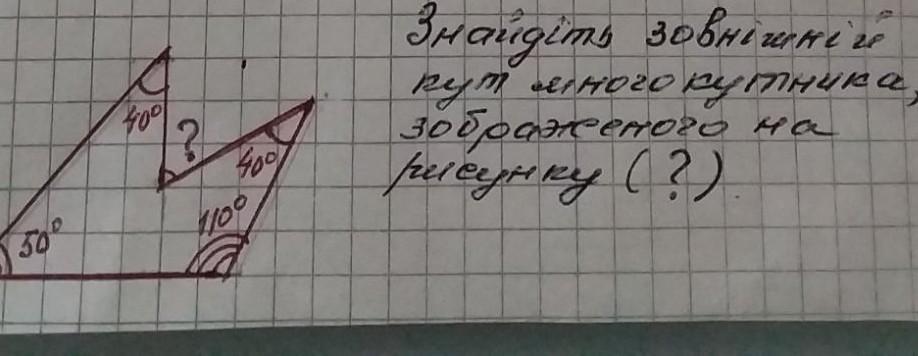 Знайдіть зовнішній
кут многокутника,
зображеного на
рисунку (?)
40°
?
40°
110°
50°